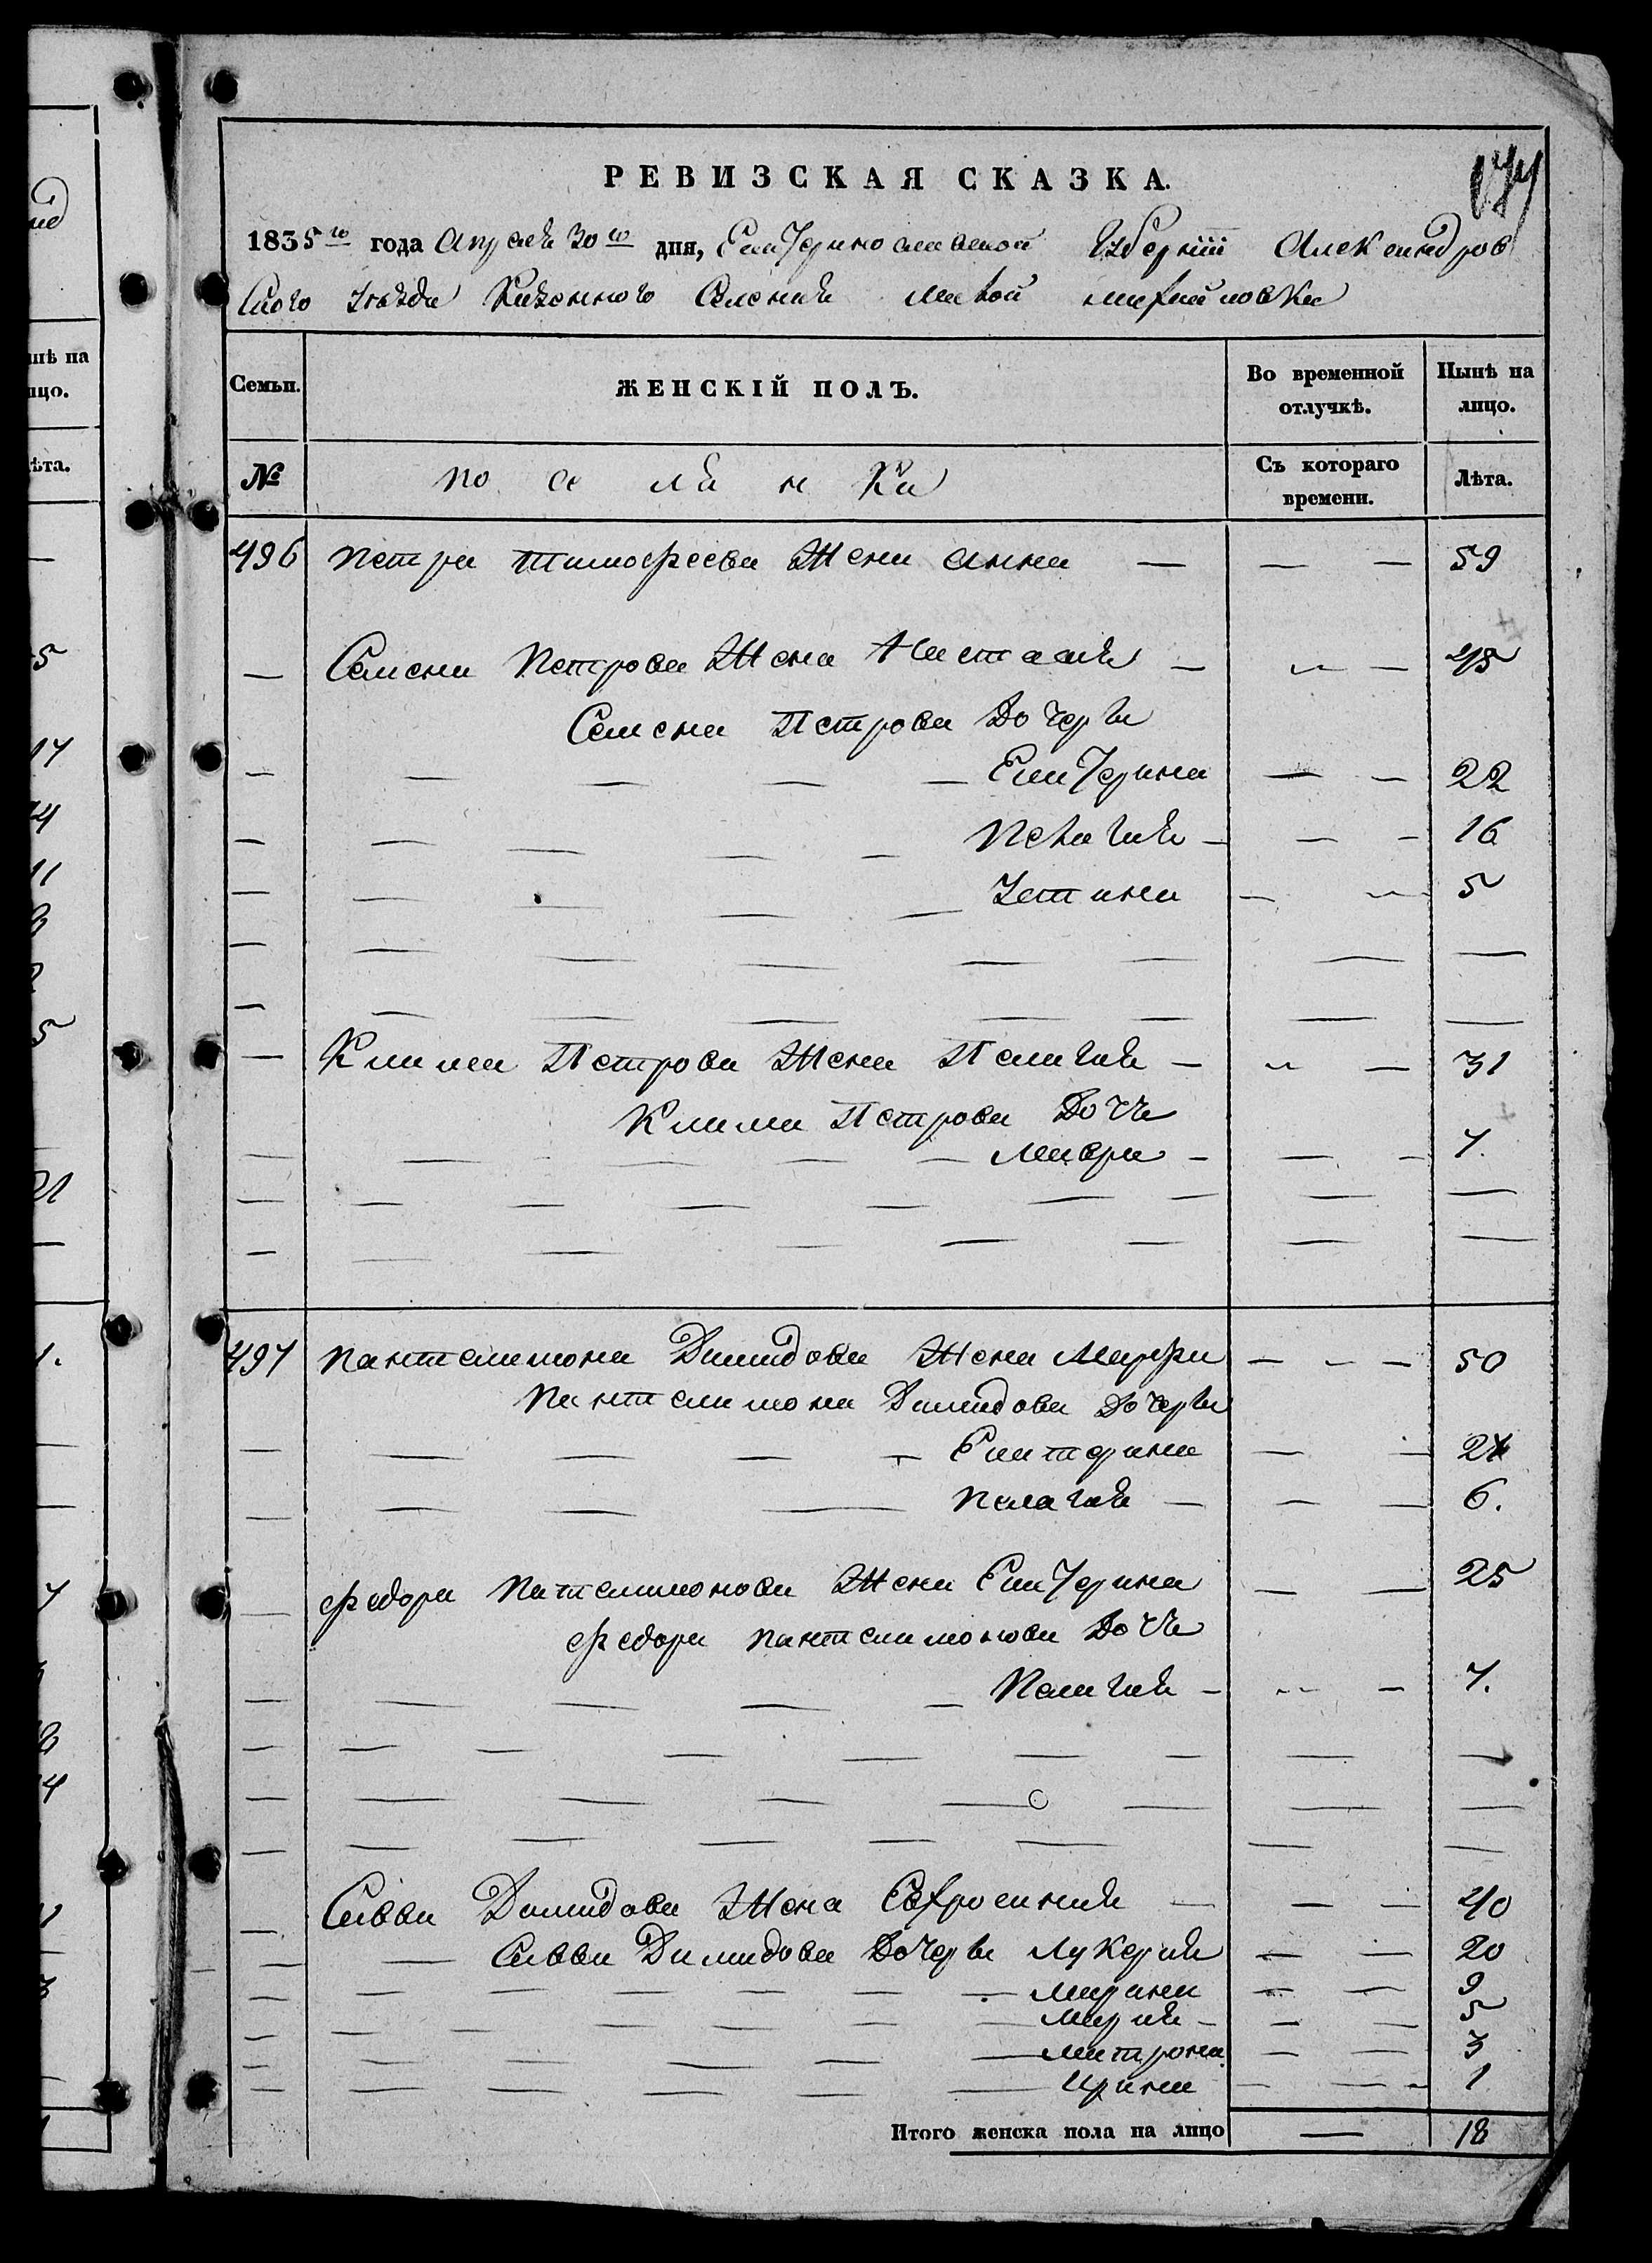 РЕВИЗСКАЯ СКАЗКА.
1835го года Апреля 30го дня, Екатеринославской Губернiи Александров
скаго Уѣзда Казенного Селения Малой Михайловки
Семьи.
ЖЕНСКІЙ ПОЛЪ.
Во временной отлучкѣ.
Нынѣ на лицо.
№
поселянка
Съ котораго времени.
Лѣта.
496 Петра Тимофеева Жена Анна — — — 59
— Семена Петрова Жена Наталия — — — 45
Семена Петрова Дочери
— — — — — Екатерина — — 22
— — — — — Пелагия — — — 16
— — — — — Устина — — 5
— Клима Петрова Жена Пелагия — — — 31
Клима Петрова Дочь
— — — — — Мавра — — — 7.
497 Пантелимона Димидова Жена Марфа — — — 50
Пантелимона Димидова Дочери
— — — — — Екатерина — — 24
— — — — Палагия — — — 6.
— Федора Пателимонова Жена Екатерина — — 25
Федора Пантелимонова Дочь
— — — — — Пелагия — — — 7.
— Савви Димидова Жена Евфросиния — — — 40
— — Савви Димидова Дочери Лукерия — — 20
— — — — — — — Марина — — 9
— — — — — — — Мария — — — 5
— — — — — — — Матрона — — 3
— — — — — — — Ирина — — — 1
Итого женска пола на лицо — 18
нѣ на
ицо.
ѣта.